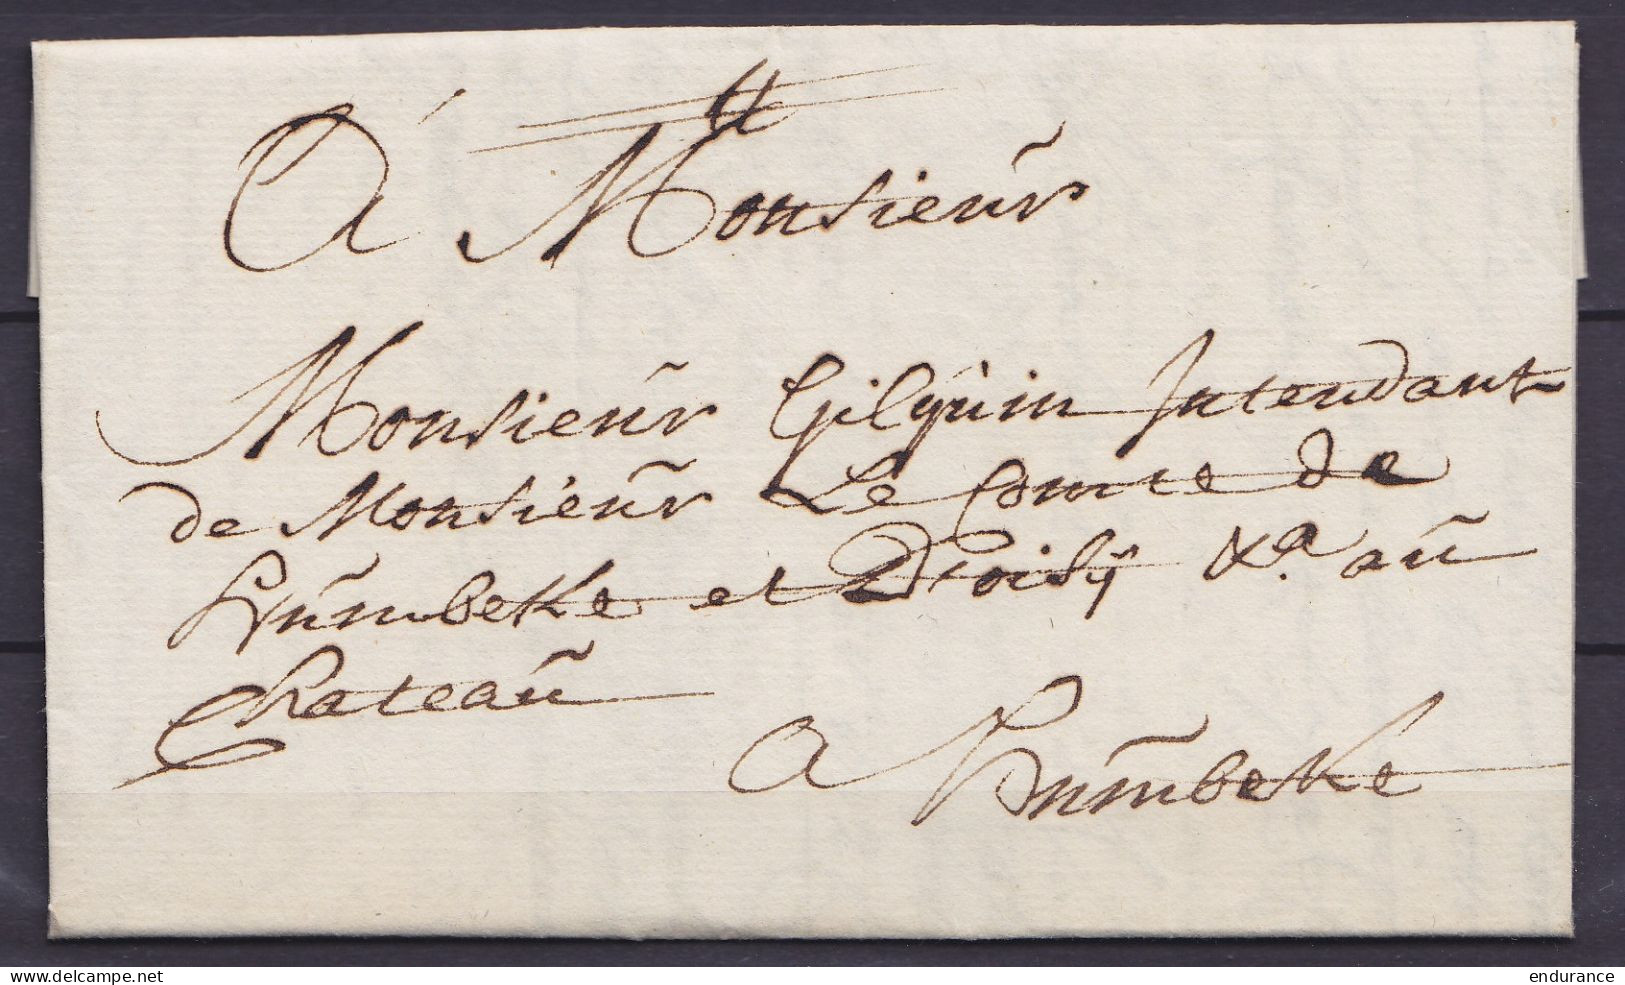 A Monsieur
Monsieur Gilquin Intendant
de Monsieur Le Comte de
Krumbeke et Droisÿ &a. au
Chateau
a Krumbeke
www.delcampe.net
endurance